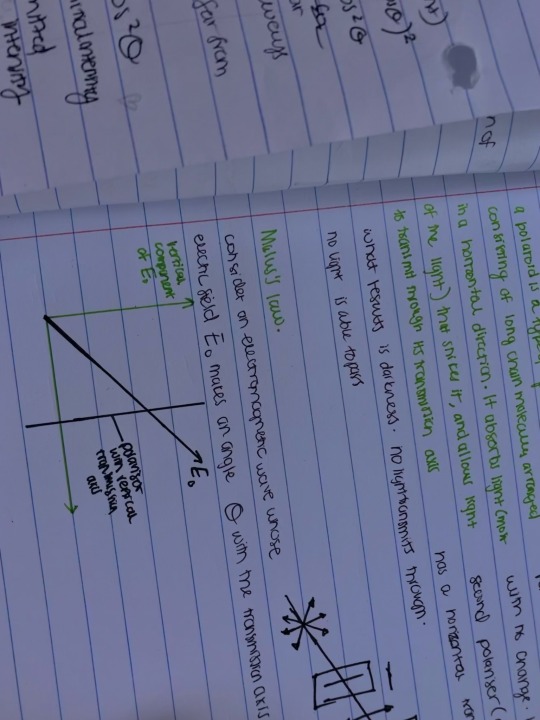 a polaroid is a
consisting of long chain molecules arranged
in a horizontal direction. It absorbs light (most
of the light) that strikes it, and allows light
to transmit through its transmission axis
with no change.
second polariser (
has a horizontal
what results is darkness. no light transmits through.
no light is able to pass
Malus's law.
consider an electromagnetic wave whose
electric field E₀ makes an angle θ with the transmission axis
vertical
component
of E₀
E₀
polariser
with vertical
transmission
axis
n of
θ)²
os²θ
for
always
far from
os²θ
intensity
mitted
intensity